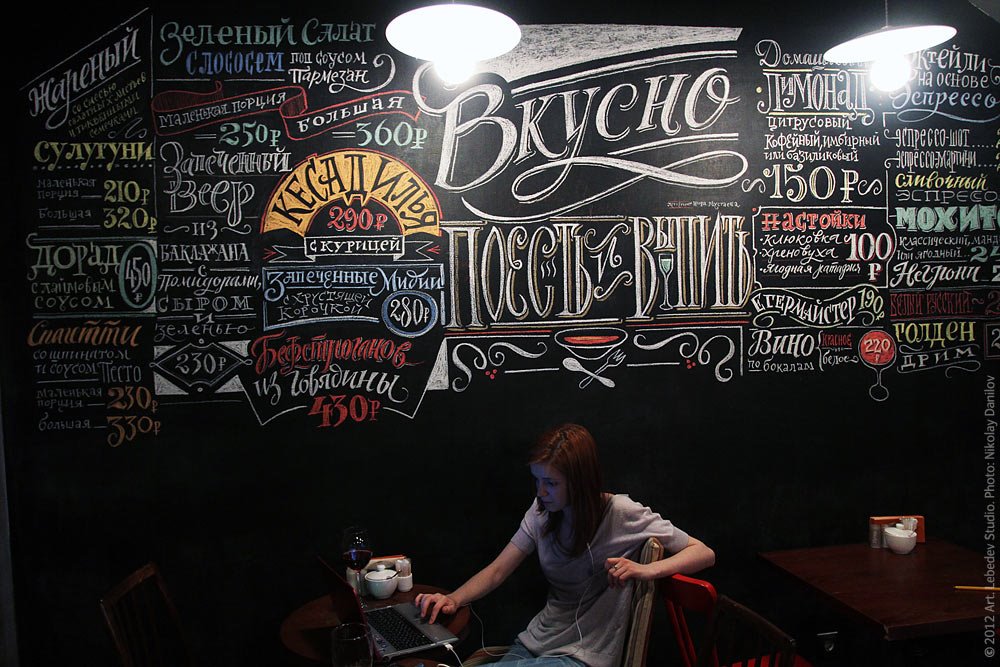 Жареный
со смесью
сулугуни
маленькая
порция — 210₽
большая 320₽
Дорадо
с лаймовым
соусом
450
Спагетти
со шпинатом
и соусом Песто
маленькая
порция — 230₽
большая — 330₽
Зеленый Салат
с лососем
под соусом
Пармезан
маленькая порция
— 250₽
большая
— 360₽
Запеченный
Веер
из
баклажана
с
помидорами,
сыром
и
зеленью
230₽
Кесадилья
290₽
с курицей
Запеченные Мидии
с хрустящей
корочкой
280₽
Бефстроганов
из говядины
430₽
Вкусно
поесть и выпить
Лимонад
цитрусовый
кофейный, имбирный
или базиликовый
150₽
Настойки
• клюковка
• хреновуха
• ягодная
100₽
Егермайстер 190
Вино
по бокалам
красное
белое
220₽
на основе
эспрессо
эспрессо-шот
эспрессо-мартини
сливочный
эспрессо
Мохито
классический,
или ягодный
Негрони
Белый русский
Голден
дрим
© 2012 Art. Lebedev Studio. Photo: Nikolay Danilov